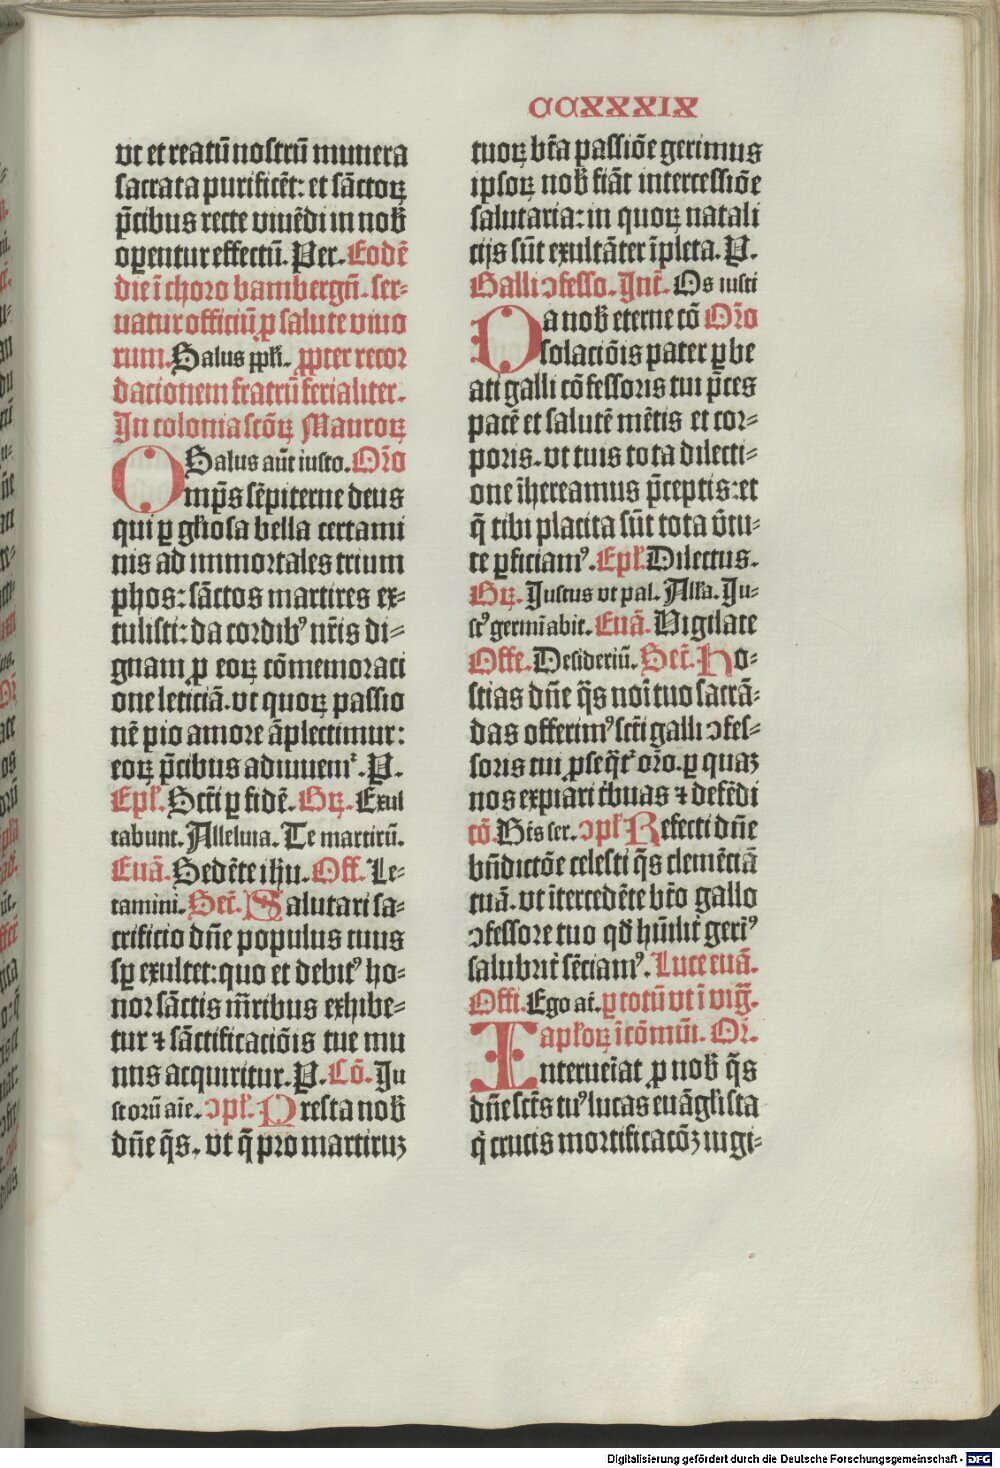 CCXXXIX
vt et reatū nostrū munera
sacrata purificēt: et sāctoꝝ
p̄cibus recte viuēdi in nob̄
oꝑentur effectū. Per. Eodē
die ī choro bambergeñ. ser⸗
uatur officiū ꝓ salute viuo
rum. Salus ppl̄i. ꝓpter recor
dacionem fratrū ferialiter.
In colonia scōꝝ Mauroꝝ
Salus aūt iusto. Or̄o
Omp̄s sēpiterne deus
qui ꝑ gl̄iosa bella certami
nis ad immortales trium
phos: sāctos martires ex⸗
tulisti: da cordibꝰ nr̄is di⸗
gnam ꝓ eoꝝ cōmemoraci
one leticiā. vt quoꝝ passio
nē pio amore āplectimur:
eoꝝ p̄cibus adiuuemr̄. P.
Epl̄. Scti ꝑ fidē. Gꝝ. Exul
tabunt. Alleluia. Te martirū.
Euā. Sedēte ihū. Off. Le⸗
tamini. Secr̄. Salutari sa⸗
crificio dn̄e populus tuus
sꝑ exultet: quo et debitꝰ ho⸗
nor sāctis mr̄ibus exhibe⸗
tur ⁊ sāctificaciōis tue mu
nus acquiritur. P. Cō. Iu
storū aīe. ↄpl̄. Presta nob̄
dn̄e q̄s. vt q̄ pro martiruꝫ
tuoꝝ btā passiōe gerimus
ipsoꝝ nob̄ fiāt intercessiōe
salutaria: in quoꝝ natali
cijs sūt exultāter īpleta. P.
Galli ↄfesso. Int̄. Os iusti
Da nob̄ eterne cō Or̄o
solaciōis pater ꝑ be
ati galli cōfessoris tui p̄ces
pacē et salutē mētis et cor⸗
poris. vt tuis tota dilecti⸗
one īhereamus p̄ceptis: et
q̄ tibi placita sūt tota v̄tu⸗
te ꝑficiamꝰ. Epl̄. Dilectus.
Gꝝ. Justus vt pal. Alla. Ju⸗
stꝰ germīabit. Euā. Vigilate
Offe. Desideriū. Secr̄. Ho⸗
stias dn̄e q̄s noī tuo sacrā⸗
das offerimꝰ scti galli ↄfes⸗
soris tui ꝓseq̄t̄ or̄o. ꝑ quaꝫ
nos expiari tribuas ⁊ defēdi
cō. Btūs ser. ↄpl̄ Refecti dn̄e
bn̄dictōe celesti q̄s clemēciā
tuā. vt ītercedēte btō gallo
ↄfessore tuo qd̄ hūilit̄ gerīꝰ
salubrit̄ sēciamꝰ. Luce euā.
Offi. Ego aūt. ꝑ totū vt ī vig̃.
apl̄oꝝ ī cōmūi. Or̄.
Interueīat ꝓ nob̄ q̄s
dn̄e sct̄s tuꝰ lucas euāgl̄ista
q̄ crucis mortificacōꝫ iugi⸗
Digitalisierung gefördert durch die Deutsche Forschungsgemeinschaft - DFG